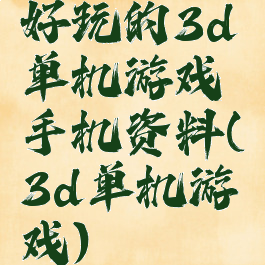 好玩的3d
单机游戏
手机资料(
3d单机游
戏)